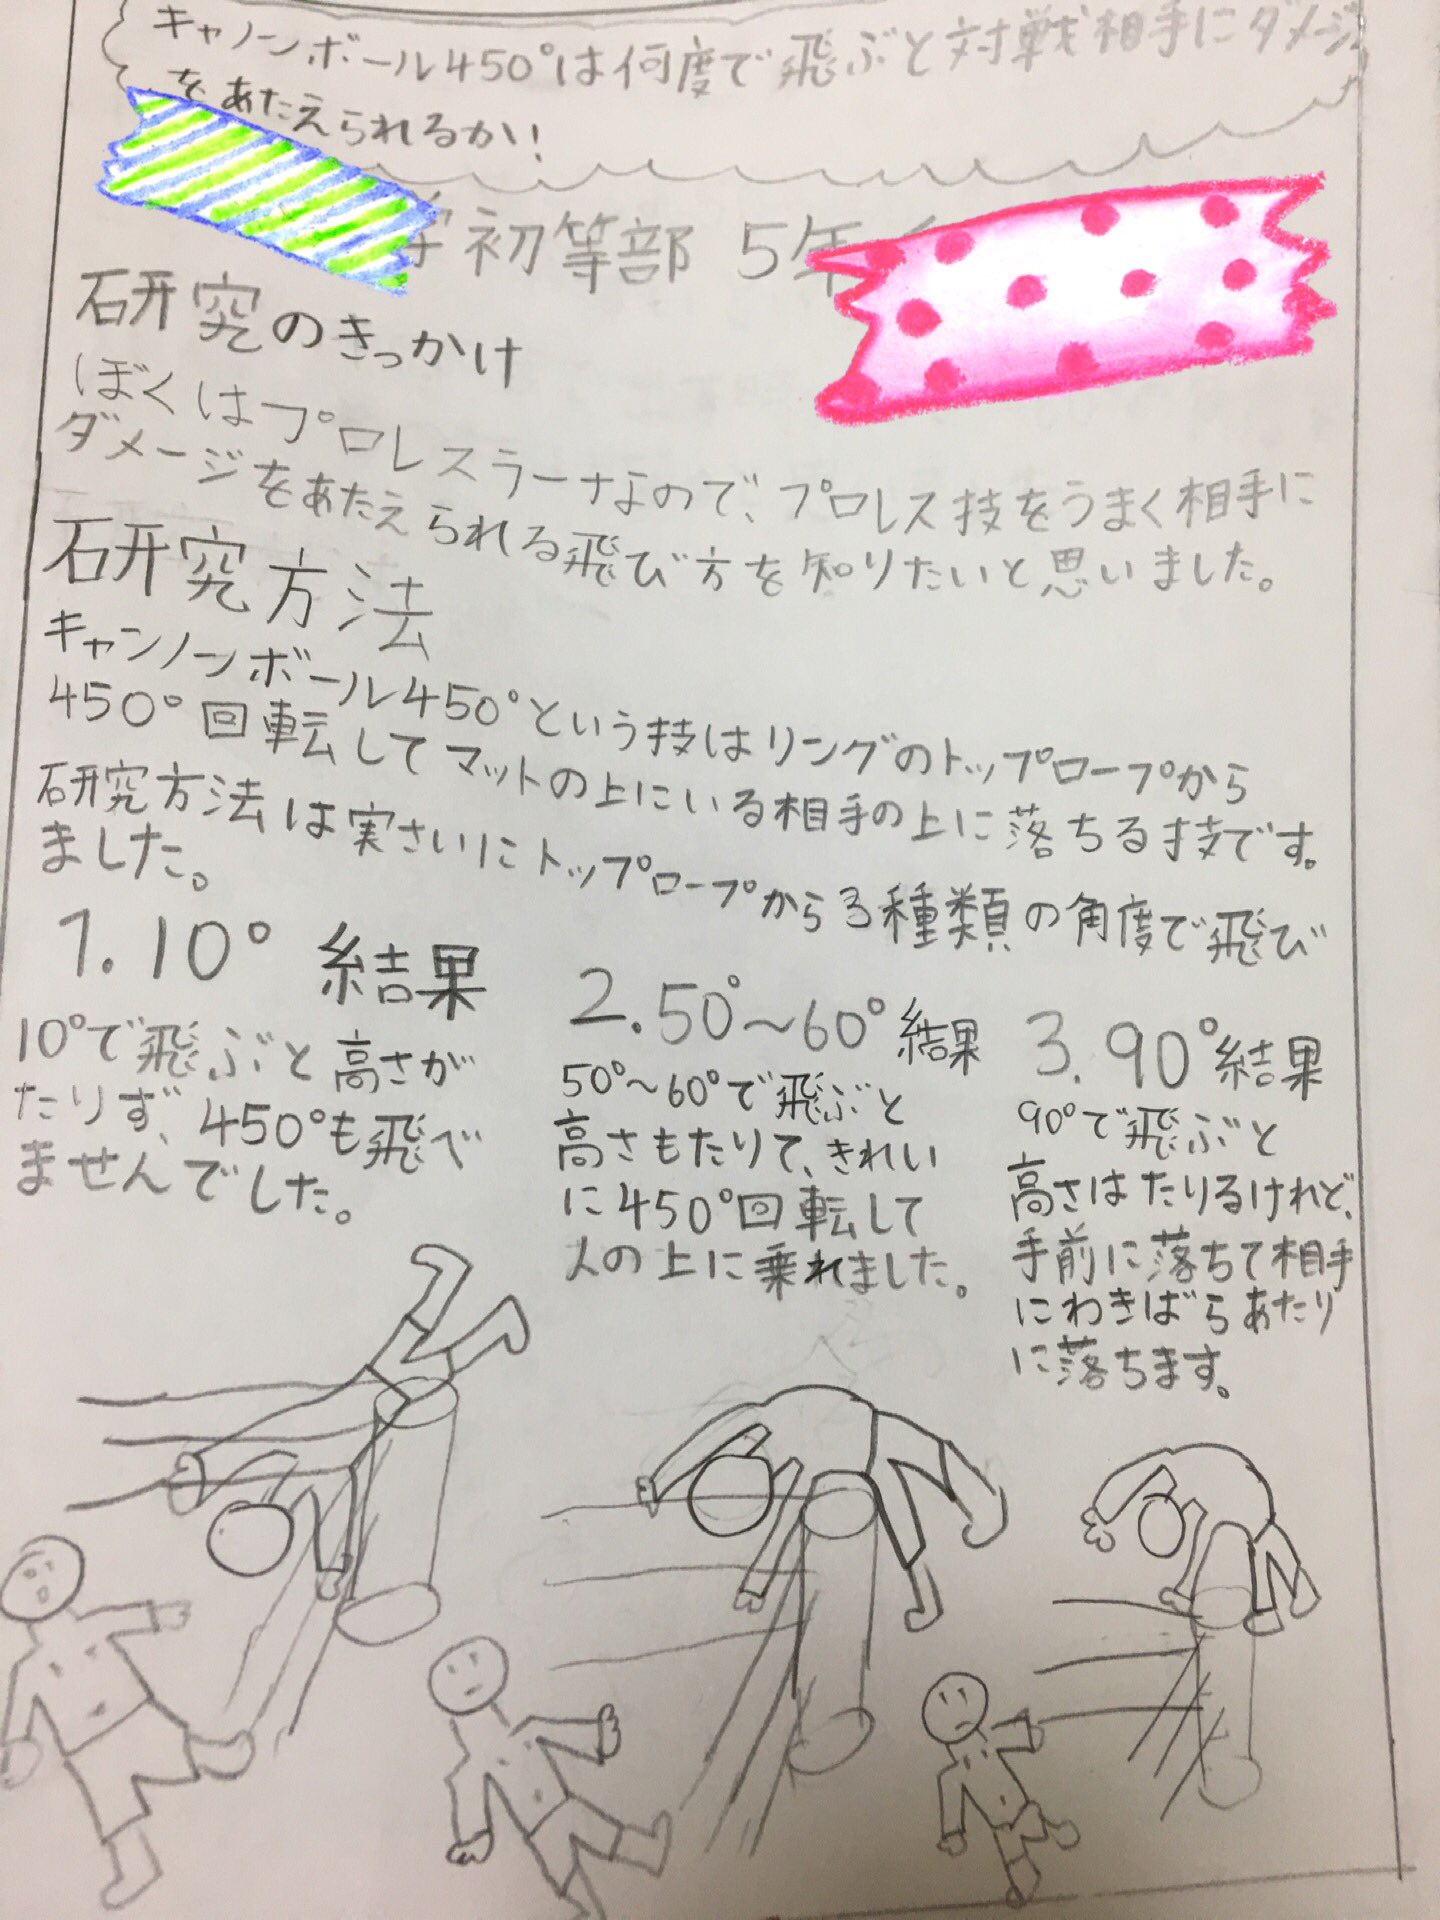 キャノーンボール450°は何度で飛ぶと対戦相手にダメージ
をあたえられるか!
初等部 5年
研究のきっかけ
ぼくはプロレスラーなので、プロレス技をうまく相手に
ダメージをあたえられる飛び方を知りたいと思いました。
研究方法
キャンノーンボール450°という技はリングのトップロープから
450°回転してマットの上にいる相手の上に落ちる技です。
研究方法は実さいにトップロープから3種類の角度で飛び
ました。
1.10° 結果
10°で飛ぶと高さが
たりず、450°も飛べ
ませんでした。
2.50°~60°結果
50°~60°で飛ぶと
高さもたりて、きれい
に450°回転して
人の上に乗れました。
3.90°結果
90°で飛ぶと
高さはたりるけれど、
手前に落ちて相手
にわきばらあたり
に落ちます。